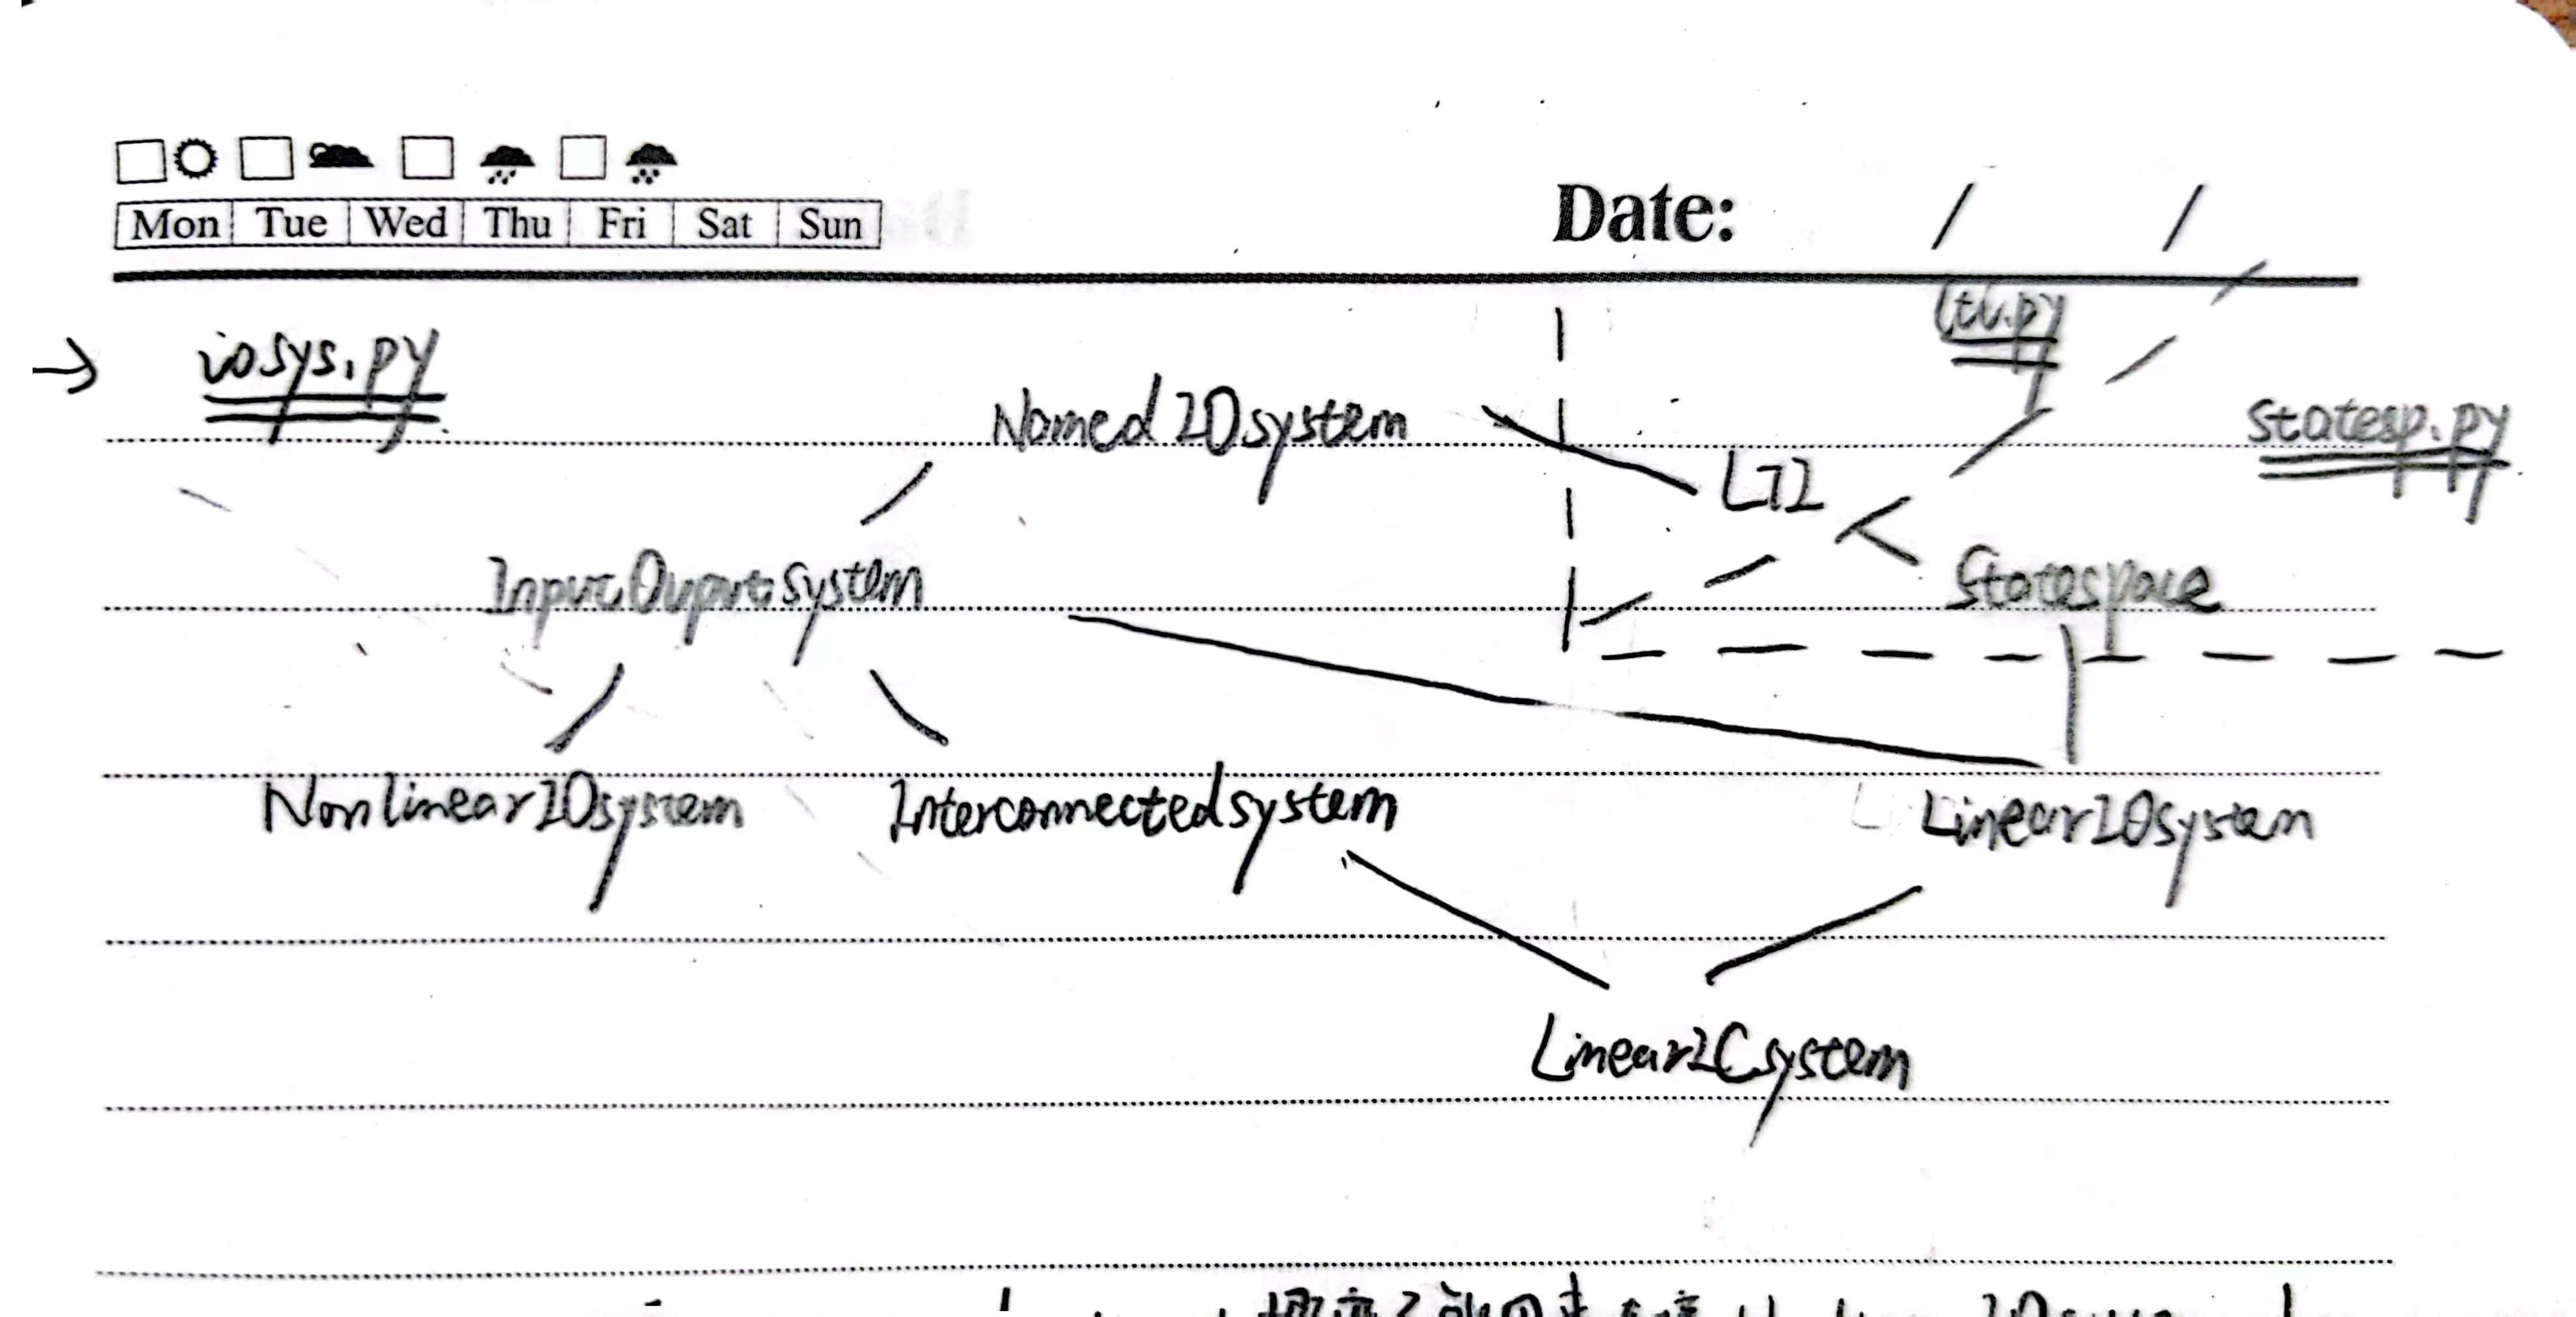 Mon Tue Wed Thu Fri Sat Sun
Date: / /
→ iosys.py
lti.py
NamedIOsystem
statesp.py
LTI
InputOuputsystem
Statespace
NonlinearIOsystem Interconnectedsystem LinearIOsystem
LinearICsystem